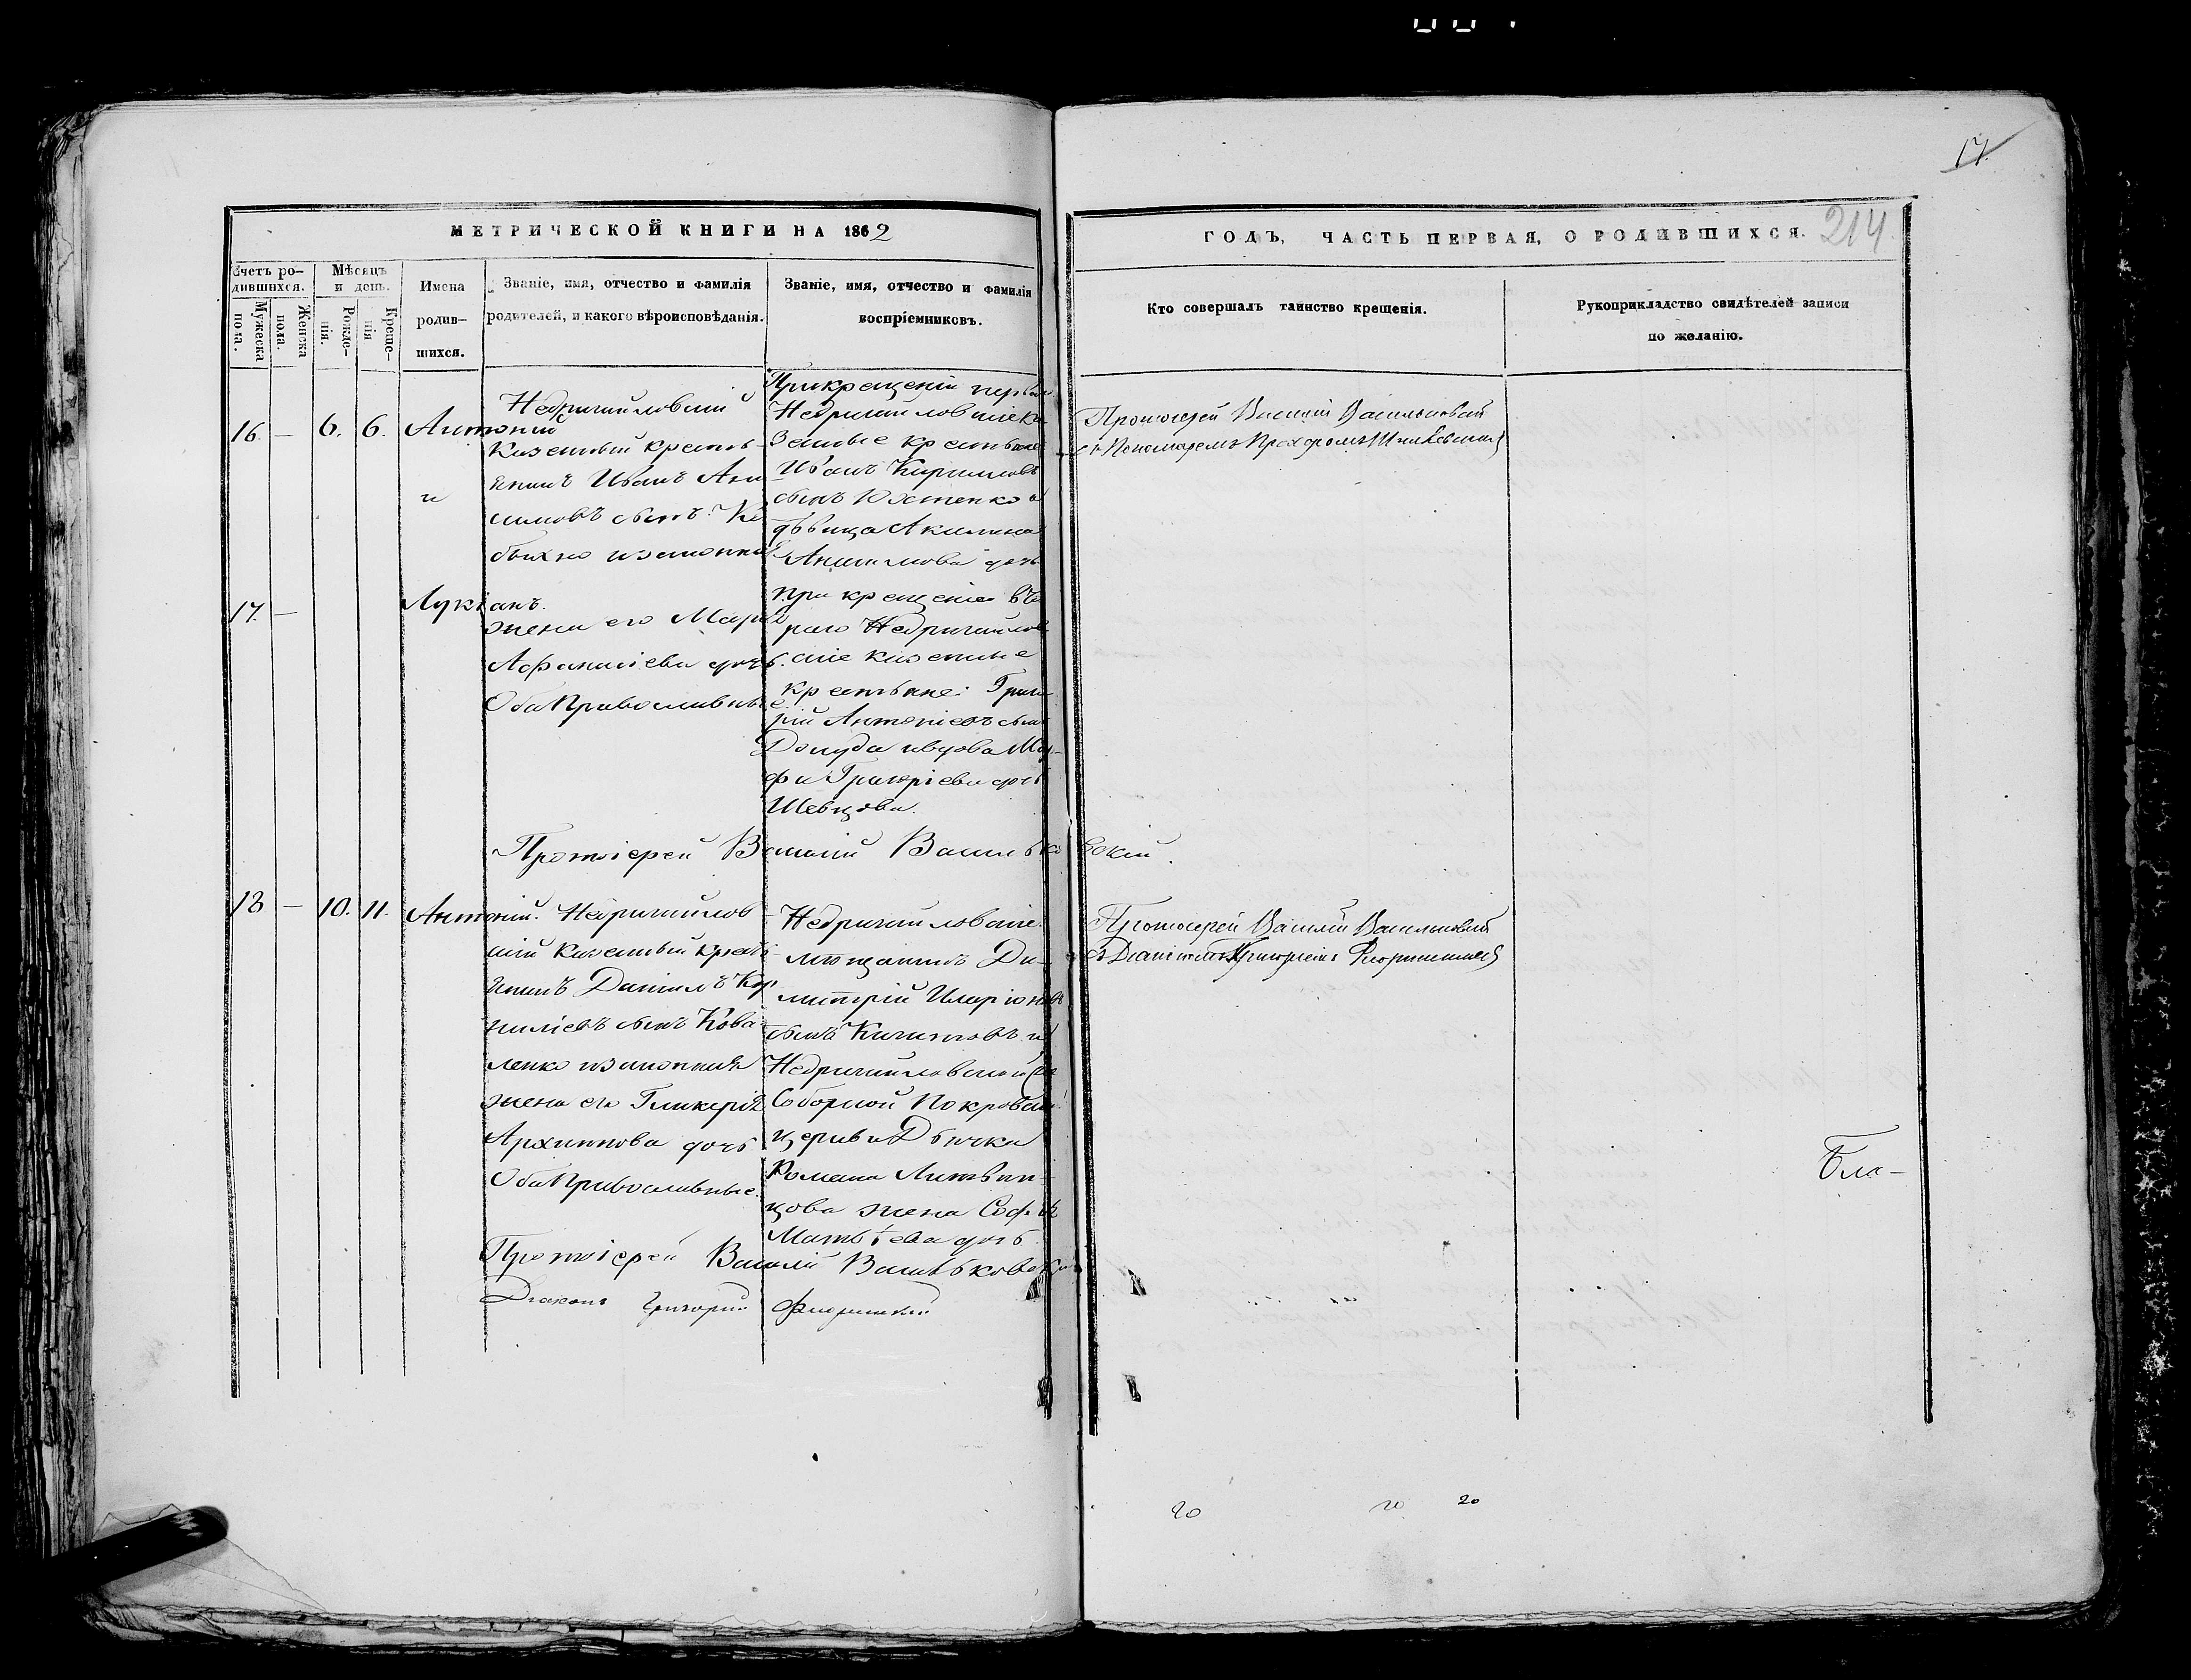 17.
214
МЕТРИЧЕСКОЙ КНИГИ НА 1862
ГОДЪ, ЧАСТЬ ПЕРВАЯ, О РОДИВШИХСЯ.
Счетъ ро-
дившихся.
Мужеска
пола.
Женска
пола.
Мѣсяцъ
и день.
Рожде-
нія.
Креще-
нія
Имена
родив-
шихся.
Званіе, имя, отчество и фамилія
родителей, и какого вѣроисповѣданія.
Званіе, имя, отчество и фамилія
воспріемниковъ.
Кто совершалъ таинство крещенія.
Рукоприкладство свидѣтелей записи
по желанію.
16. — 6. 6. Антоній
и
17. —
Лукіанъ.
Недригайловскій
Казенный кресть-
янинъ Иванъ Ани
симовъ сынъ
законная
жена его Марія
Афанасіева дочь.
Оба Православные
При крещеніи перваго
Недригайловскіе ка
зенные крестьяне
Иванъ Кирилловъ
сынъ Юхтенко и
дѣвица Акилина
Анисимова дочь
при крещеніи вто
раго Недригайлов
скіе казенные
крестьяне: Григо
рій Антоніевъ сынъ
Долуда и вдова Мар-
фа Григоріева дочь
Шевцова.
Протоіерей Василій Васильковскій
съ Пономаремъ Прохоромъ
Протоіерей Василій Васильковскій.
18 — 10. 11. Антоній. Недригайлов
скій казенный кресть
янинъ Даніилъ Кор
ниліевъ сынъ Кова
ленко и законная
жена его Гликерія
Архиппова дочь
Оба Православные.
Недригайловскіе
мѣщанинъ Ди-
митрій Иларіоновъ
сынъ Кичиговъ и
Недригайловской
Соборной Покровской
церкви Дьячка
Романа Литвин-
цова жена Софія
Матѳіева дочь
Протоіерей Василій Васильковскій
съ Діакономъ Григоріемъ
Протоіерей Василій Васильковскій
Діаконъ Григорій
Бла-
20 20 20